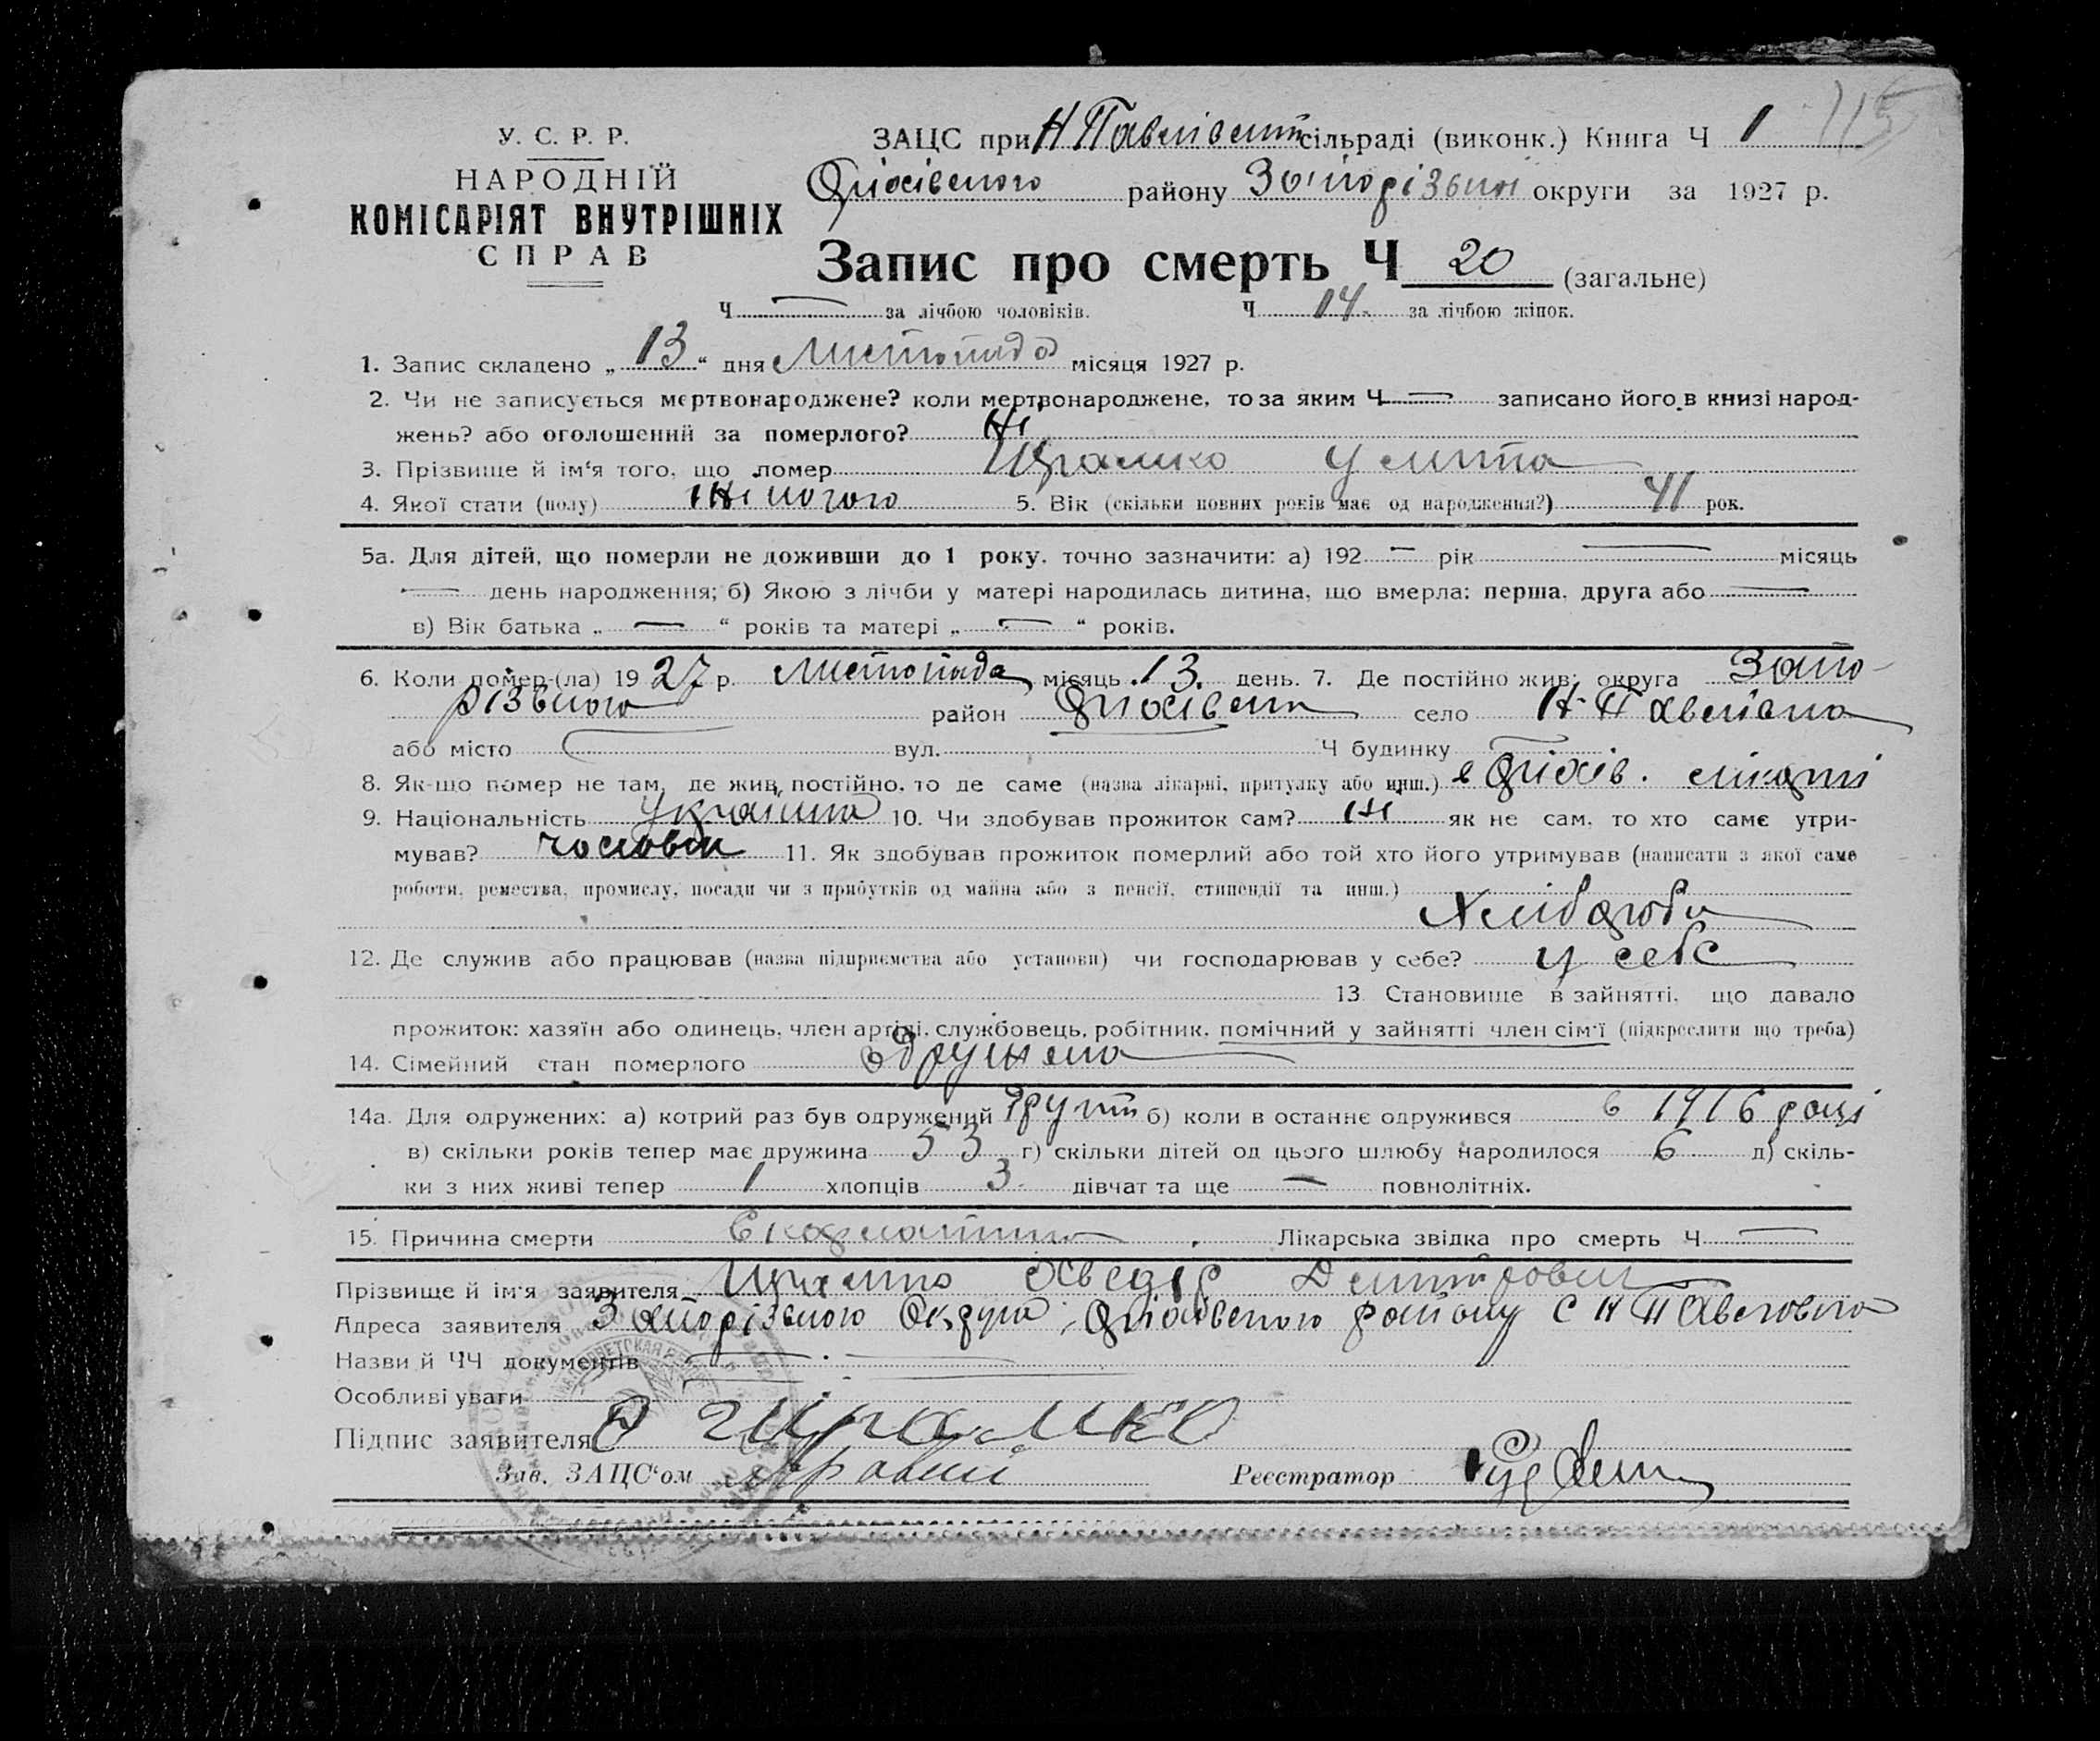 115
У. С. Р. Р.
НАРОДНІЙ
КОМІСАРІЯТ ВНУТРІШНІХ
СПРАВ
ЗАЦС при Н Павлівськ сільраді (виконк.) Книга Ч 1
Оріхівського району Запорізької округи за 1927 р.
Запис про смерть Ч 20 (загальне)
Ч — за лічбою чоловіків. Ч 14 за лічбою жінок.
1. Запис складено „ 13 “ дня Листопада місяця 1927 р.
2. Чи не записується мертвонароджене? коли мертвонароджене, то за яким Ч — записано його в книзі народ-
жень? або оголошений за померлого? Ні
3. Прізвище й ім‘я того, що помер
4. Якої статі (полу) Жіночого 5. Вік (скільки повних років має од народження?) 41 рок.
5а. Для дітей, що померли не доживши до 1 року, точно зазначити: а) 192 — рік — місяць
— день народження; б) Якою з лічби у матері народилась дитина, що вмерла: перша, друга або —
в) Вік батька „ — “ років та матері „ — “ років.
6. Коли помер-(ла) 1927 р. Листопада місяць 13 день. 7. Де постійно жив: округа Запо-
різького район Оріхівськ село Н-Павлівка
або місто — вул. Ч будинку —
8. Як-що помер не там, де жив постійно, то де саме (назва лікарні, притулку або инш.) в Оріхів. лікарні
9. Національність Українка 10. Чи здобував прожиток сам? Ні як не сам, то хто саме утри-
мував? чоловік 11. Як здобував прожиток померлий або той хто його утримував (написати з якої саме
роботи, ремества, промислу, посади чи з прибутків од майна або з пенсії, стипендії та инш.)
Хліборобс
12. Де служив або працював (назва підприємства або установи) чи господарював у себе? у себе
13. Становище в зайнятті, що давало
прожиток: хазяїн або одинець, член артілі, службовець, робітник, помічний у зайнятті член сім‘ї (підкреслити що треба)
14. Сімейний стан померлого одружена
14а. Для одружених: а) котрий раз був одружений б) коли в останнє одружився в 1916 році
в) скільки років тепер має дружина 53 г) скільки дітей од цього шлюбу народилося 6 д) скіль-
ки з них живі тепер 1 хлопців 3 дівчат та ще — повнолітніх.
15. Причина смерти Лікарська звідка про смерть Ч —
Прізвище й ім‘я заявителя Хведір
Адреса заявителя Запорізького Округа, Оріхівського району с Н Павловка
Назви й ЧЧ документів —
Особливі уваги —
Підпис заявителя
Зав. ЗАЦС‘ом Реєстратор